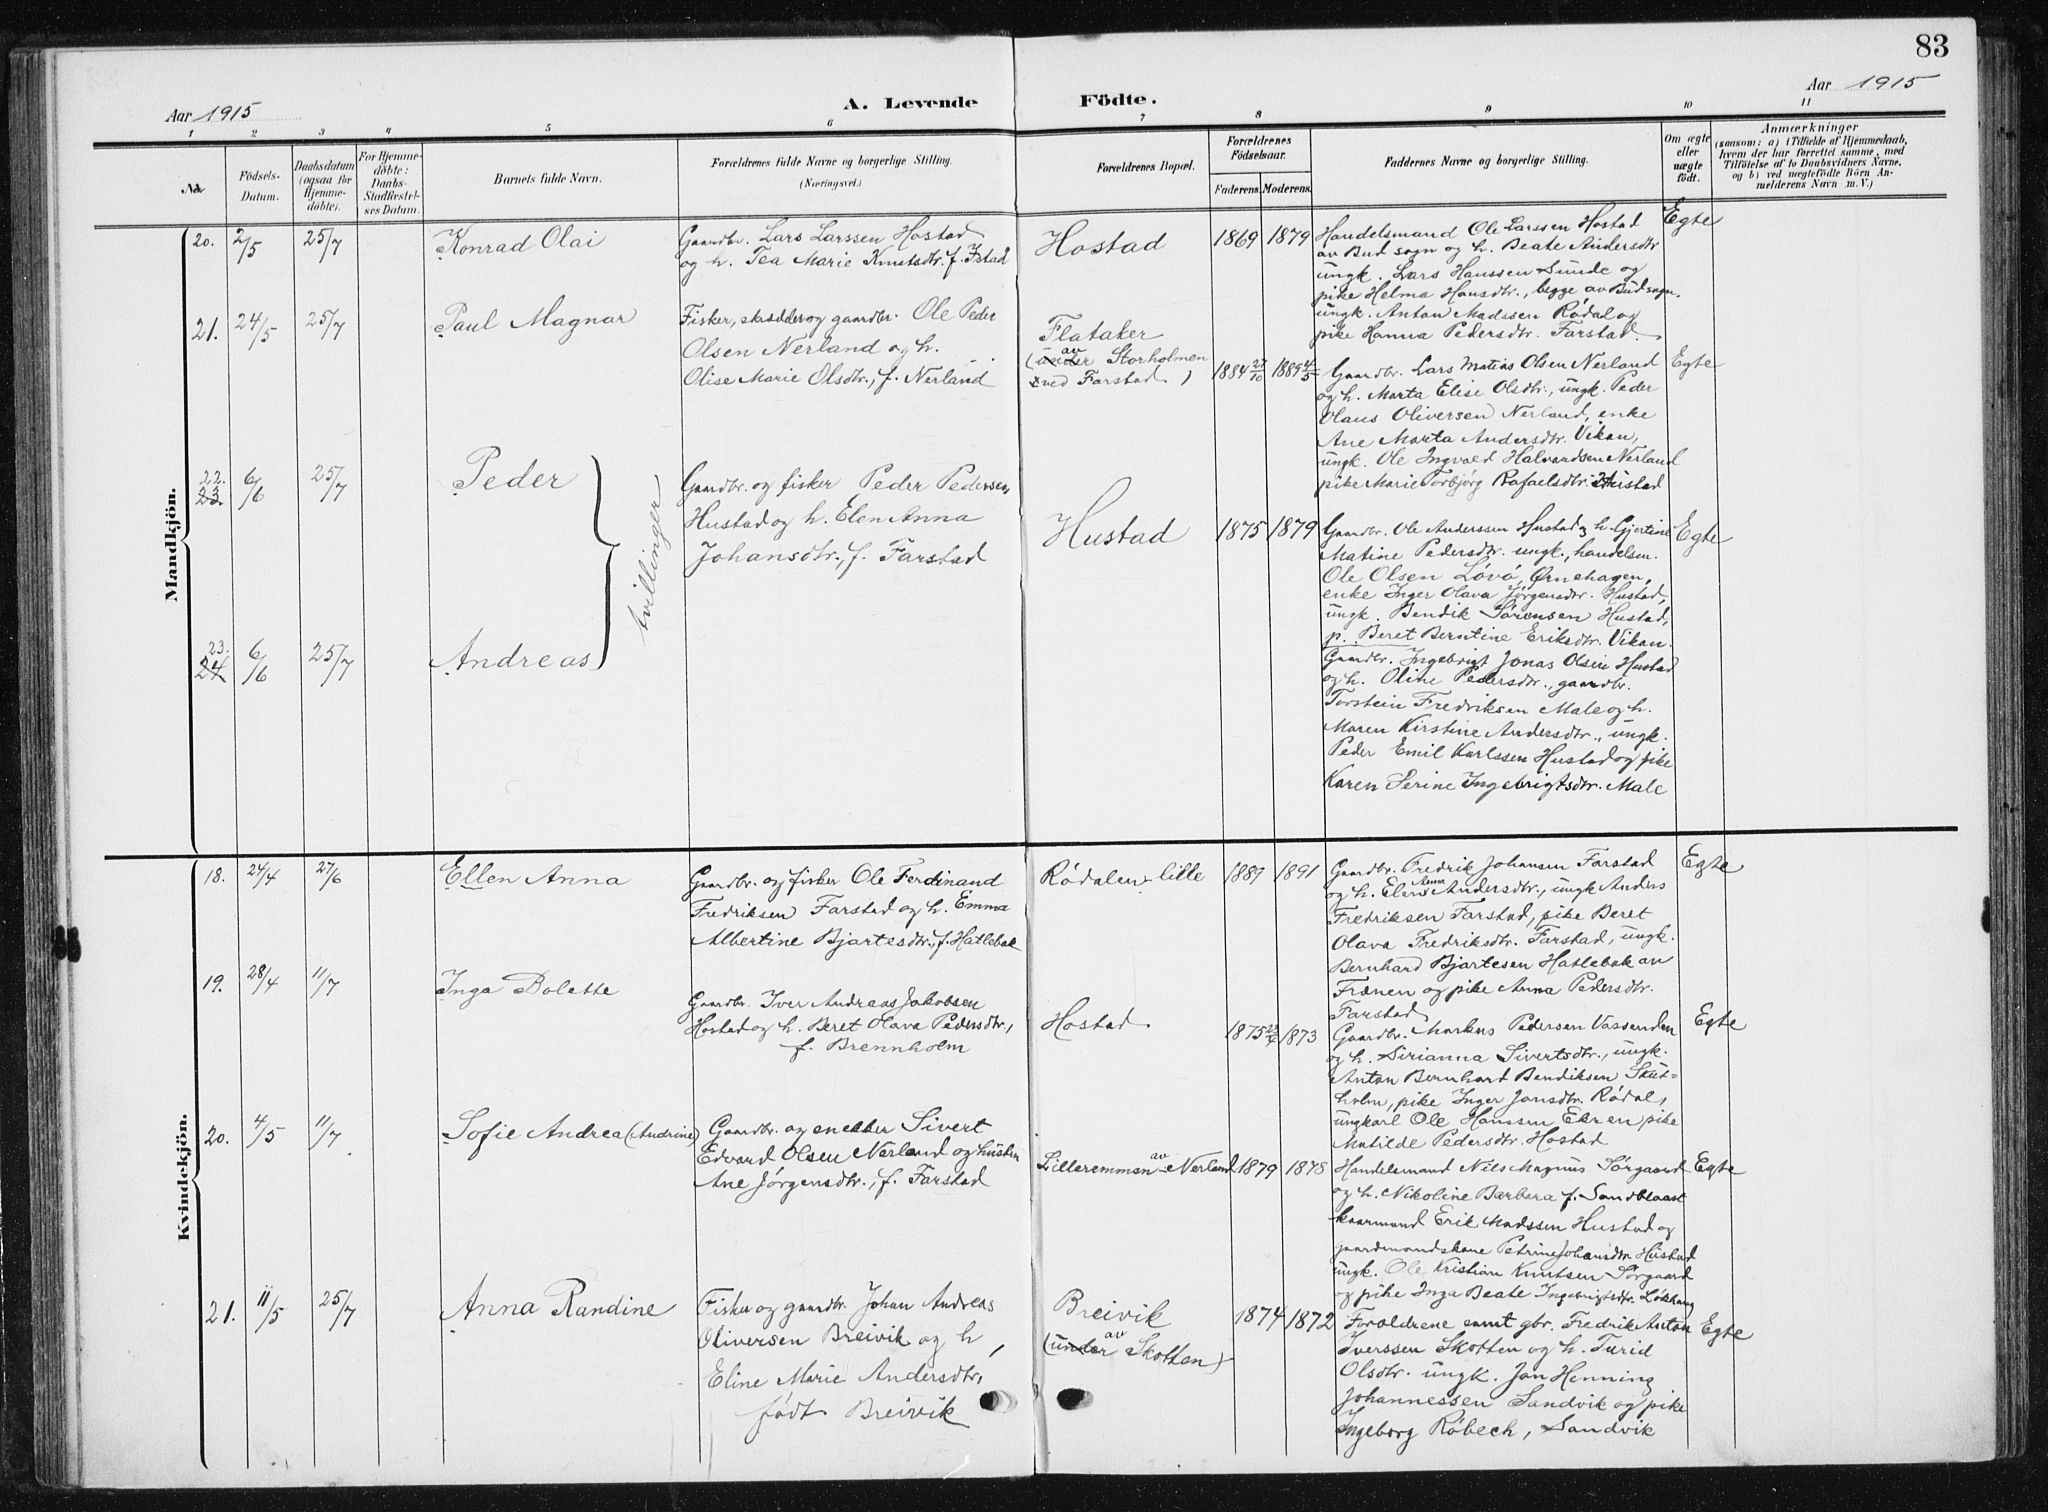 83
Aar 1915
A. Levende Födte.
Aar 1915
1 2 3 4 5 6 7 8 9 10 11
No.
Födsels-Datum.
Daabsdatum (ogsaa for Hjemme-döbte).
For Hjemme-döbte: Daabs-Stadfæstel-ses Datum.
Barnets fulde Navn.
Forældrenes fulde Navne og borgerlige Stilling.
(Næringsvei.)
Forældrenes Bopæl.
Forældrenes Födselsaar.
Faderens. Moderens.
Faddernes Navne og borgerlige Stilling.
Om ægte eller uægte födt.
Anmærkninger
(saasom: a) i Tilfælde af Hjemmedaab,
hvem der har forrettet samme, med
Tilföielse af to Daabsvidners Navne.
og b) ved uægtefödte Börn An-
melderens Navn m. V.)
Mandkjön.
20. 2/5 25/7 Konrad Olai
Gaardbr. Lars Larssen Hostad
og h. Tea Marie Knutsdtr. f. Istad
Hostad 1869 1879
Handelsmand Ole Larssen Hostad
av Bud sogn og h. Beate Andersdtr
ungk. Lars Hanssen Sunde og
pike Helma Hansdtr., begge av Bud sogn,
ungk. Anton Madssen Rødal og
pike Hanna Pedersdtr. Farstad.
Egte
21. 24/5 25/7 Paul Magnar
Fisker, skrædder og gaardbr. Ole Peder
Olsen Nerland og h.
Olise Marie Olsdtr., f. Nerland
Flataker
(under av Storholmen
ved Farstad)
1884 27/10 1889 4/5
Gaardbr. Lars Matias Olsen Nerland
og h. Marta Elise Olsdtr., ungk. Peder
Olaus Oliversen Nerland, enke
Ane Marta Andersdtr. Vikan,
ungk. Ole Ingvald Halvardsen Nerland
pike Marie Torbjørg Rafaelsdtr. Hustad
Egte
22. 23. 6/6 25/7 Peder
tvillinger
Gaardbr. og fisker Peder Pedersen
Hustad og h. Elen Anna
Johansdtr., f. Farstad
Hustad 1875 1879
Gaardbr. Ole Anderssen Hustad og h. Gjertine
Matine Pedersdtr. ungk., handelsm.
Ole Olsen Løvø, Ørnehagen,
enke Inger Olava Jørgensdtr. Hustad,
ungk. Bendik Sørensen Hustad,
p. Beret Berntine Eriksdtr. Vikan.
Egte
23. 24. 6/6 25/7 Andreas
Gaardbr. Ingebrigt Jonas Olsen Hustad
og h. Oline Pedersdtr., gaardbr.
Torstein Fredriksen Male og h.
Maren Kirstine Andersdtr., ungk.
Peder Emil Karlssen Hustad og pike
Karen Serine Ingebrigtsdtr. Male
Kvindekjön.
18. 24/4 27/6 Ellen Anna
Gaardbr. og fisker Ole Ferdinand
Fredriksen Farstad og h. Emma
Albertine Bjartesdtr., f. Hatlebak
Rødalen - lille 1889 1891
Gaardbr. Fredrik Johansen Farstad
og h. Elen Anna Andersdtr., ungk Anders
Fredriksen Farstad, pike Beret
Olava Fredriksdtr. Farstad, ungk.
Bernhard Bjartesen Hatlebak av
Frænen og pike Anna Pedersdtr.
Farstad
Egte
19. 28/4 11/7 Inga Bolette
Gaardbr. Iver Andreas Jakobsen
Hostad og h. Beret Olava Pedersdtr.,
f. Brennholm
Hostad 1875 23/4 1873
Gaardbr. Markus Pedersen Vassenden
og h. Sirianna Sivertsdtr., ungk.
Anton Bernhard Bendiksen Skut-
holm, pike Inger Jonsdtr. Rødal,
ungkarl Ole Hanssen Ekren pike
Matilde Pedersdtr. Hostad
Egte
20. 4/5 11/7 Sofie Andrea (Andrine)
Gaardbr. og snekker Sivert
Edvard Olsen Nerland og hustru
Ane Jørgensdtr., f. Farstad
Lilleremmen av Nerland 1879 1878
Handelsmand Nils Magnus Sørgaard
og h. Nikoline Barbara f. Sandblaast
kaarmand Erik Madssen Hustad og
gaardmandskone Petrine Johansdtr. Hustad
ungk. Ole Kristian Knutsen Sørgaard
og pike Inga Beate Ingebrigtsdtr. Løkhaug
Egte
21. 11/5 25/7 Anna Randine
Fisker og gaardbr. Johan Andreas
Oliversen Breivik og h,
Eline Marie Andersdtr,
født Breivik
Breivik
(under av Skotten)
1874 1872
Forældrene samt gbr. Fredrik Anton
Iverssen Skotten og h. Turid
Olsdtr. ungk. Jan Henning
Johannessen Sandvik og pike
Ingeborg Røbech, Sandvik
Egte